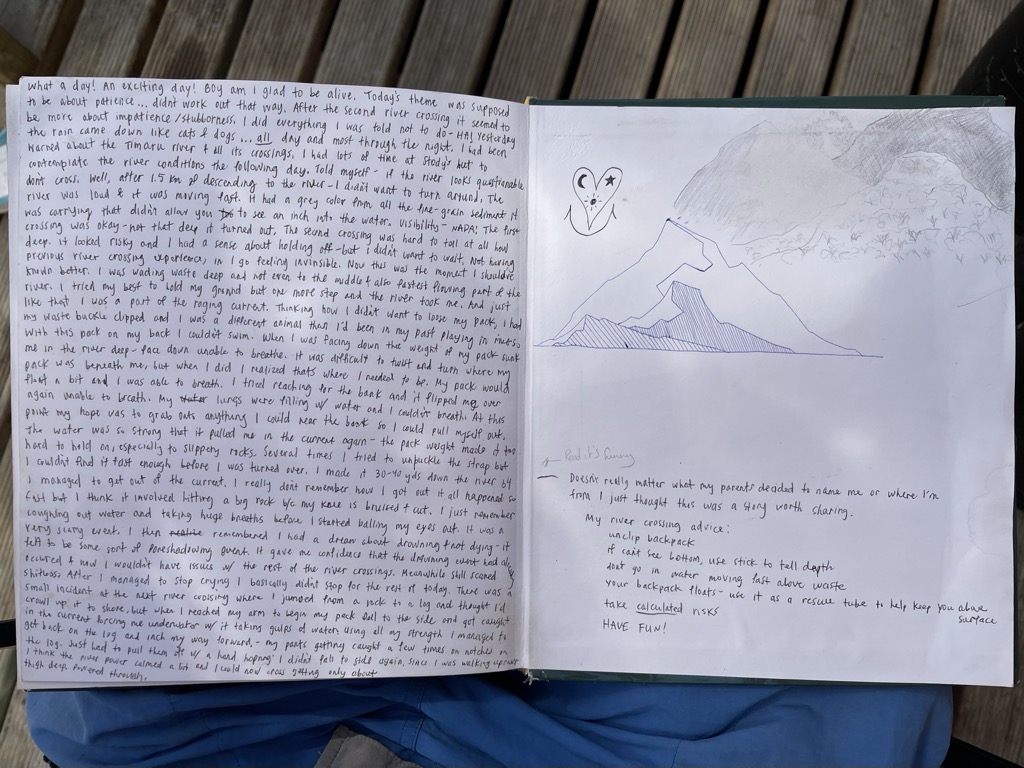 What a day! An exciting day! Boy am I glad to be alive. Today's theme was supposed
to be about patience... didnt work out that way. After the second river crossing it seemed to
be more about impatience/stubborness. I did everything I was told not to do - HA! Yesterday
the rain came down like cats & dogs... all day and most through the night. I had been
warned about the Timaru river & all its crossings. I had lots of time at Stody's but to
contemplate the river conditions the following day. Told myself - if the river looks questionable
don't cross. Well, after 1.5 km of descending to the river - I didn't want to turn around. The
river was loud & it was moving fast. It had a grey color from all the fine-grain sediment it
was carrying that didn't allow you to see an inch into the water. Visibility - NADA! The first
crossing was okay - not that deep it turned out. The second crossing was hard to tell at all how
deep. it looked risky and I had a sense about holding off - but i didn't want to wait. Not having
previous river crossing experience, in I go feeling invinsible. Now this was the moment I should've
known better. I was wading waste deep and not even to the middle & also fastest flowing part of the
river. I tried my best to hold my ground but one more step and the river took me. And just
like that I was a part of the raging current. Thinking how I didn't want to loose my pack, i had
my waste buckle clipped and I was a different animal than I'd been in my past playing in rivers.
With this pack on my back I couldn't swim. When I was facing down the weight of my pack sunk
me in the river deep - face down unable to breathe. It was difficult to twist and turn where my
pack was beneath me, but when I did I realized thats where I needed to be. My pack would
float a bit and I was able to breath. I tried reaching for the bank and it flipped me over
again unable to breath. My lungs were filling w/ water and I couldn't breath. At this
point my hope was to grab onto anything I could near the bank so I could pull myself out.
The water was so strong that it pulled me in the current again - the pack weight made it too
hard to hold on, especially to slippery rocks. Several times I tried to unbuckle the strap but
I couldn't find it fast enough before I was turned over. I made it 30-40 yds down the river by
I managed to get out of the current. I really don't remember how I got out it all happened so
fast but I think it involved hitting a big rock b/c my knee is bruised & cut. I just remember
coughing out water and taking huge breaths before I started balling my eyes out. It was a
very scary event. I then remembered I had a dream about drowning & not dying - it
felt to be some sort of foreshadowing event. It gave me confidence that the drowning event had already
occured & now I wouldn't have issues w/ the rest of the river crossings. Meanwhile still scared
shitless. After I managed to stop crying I basically didn't stop for the rest of today. There was a
small incident at the next river crossing where I jumped from a rock to a log and thought I'd
crawl up it to shore. but when I reached my arm to begin my pack fell to the side and got caught
in the current forcing me underwater w/ it taking gulps of water. Using all my strength I managed to
get back on the log and inch my way forward - my pants getting caught a few times on notches on
the log. Just had to pull them off w/ a hand hoping I didn't fall to side again. Since I was walking upriver
I think the river power calmed a bit and I could now cross getting only about
thigh deep. Powered through.
Read it's funny
Doesn't really matter what my parents decided to name me or where I'm
from I just thought this was a story worth sharing.
My river crossing advice:
unclip backpack
if can't see bottom, use stick to tell depth
dont go in water moving fast above waste
your backpack floats - use it as a rescue tube to help keep you above
surface
take calculated risks
HAVE FUN!